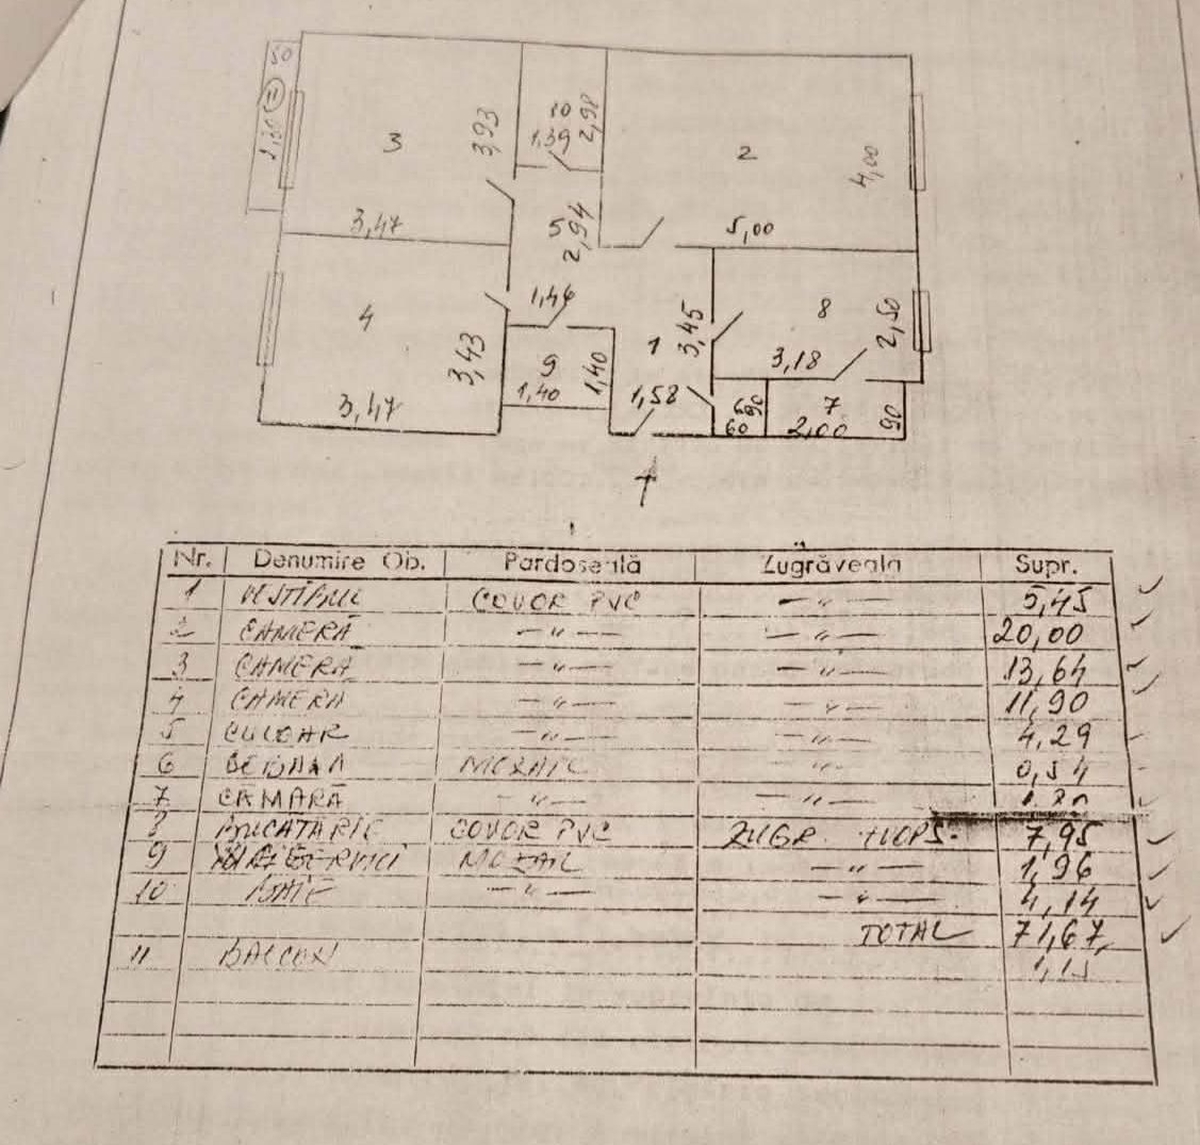 50
2,30 11
3
3,93
3,47
10
1,39
2,98
2
4,00
5,00
5
2,94
1,46
4
3,43
3,47
9
1,40
1,40
1
3,45
1,58
8
3,18
2,50
6
60
90
7
2,00
90
Nr. Denumire Ob. Pardoseală Zugrăveala Supr.
1 VESTIBUL COVOR PVC —〃— 5,45
2 CAMERĂ —〃— —〃— 20,00
3 CAMERA —〃— —〃— 13,64
4 CAMERA —〃— —〃— 11,90
5 CULOAR —〃— —〃— 4,29
6 MOZAIC —〃— 0,54
7 CĂMARĂ —〃— —〃— 1.80
8 BUCATARIE COVOR PVC ZUGR. 7,95
9 SERVICI MOZAIC —〃— 1,96
10 BAIE —〃— —〃— 4,14
TOTAL 71,67
11 BALCON 1,15